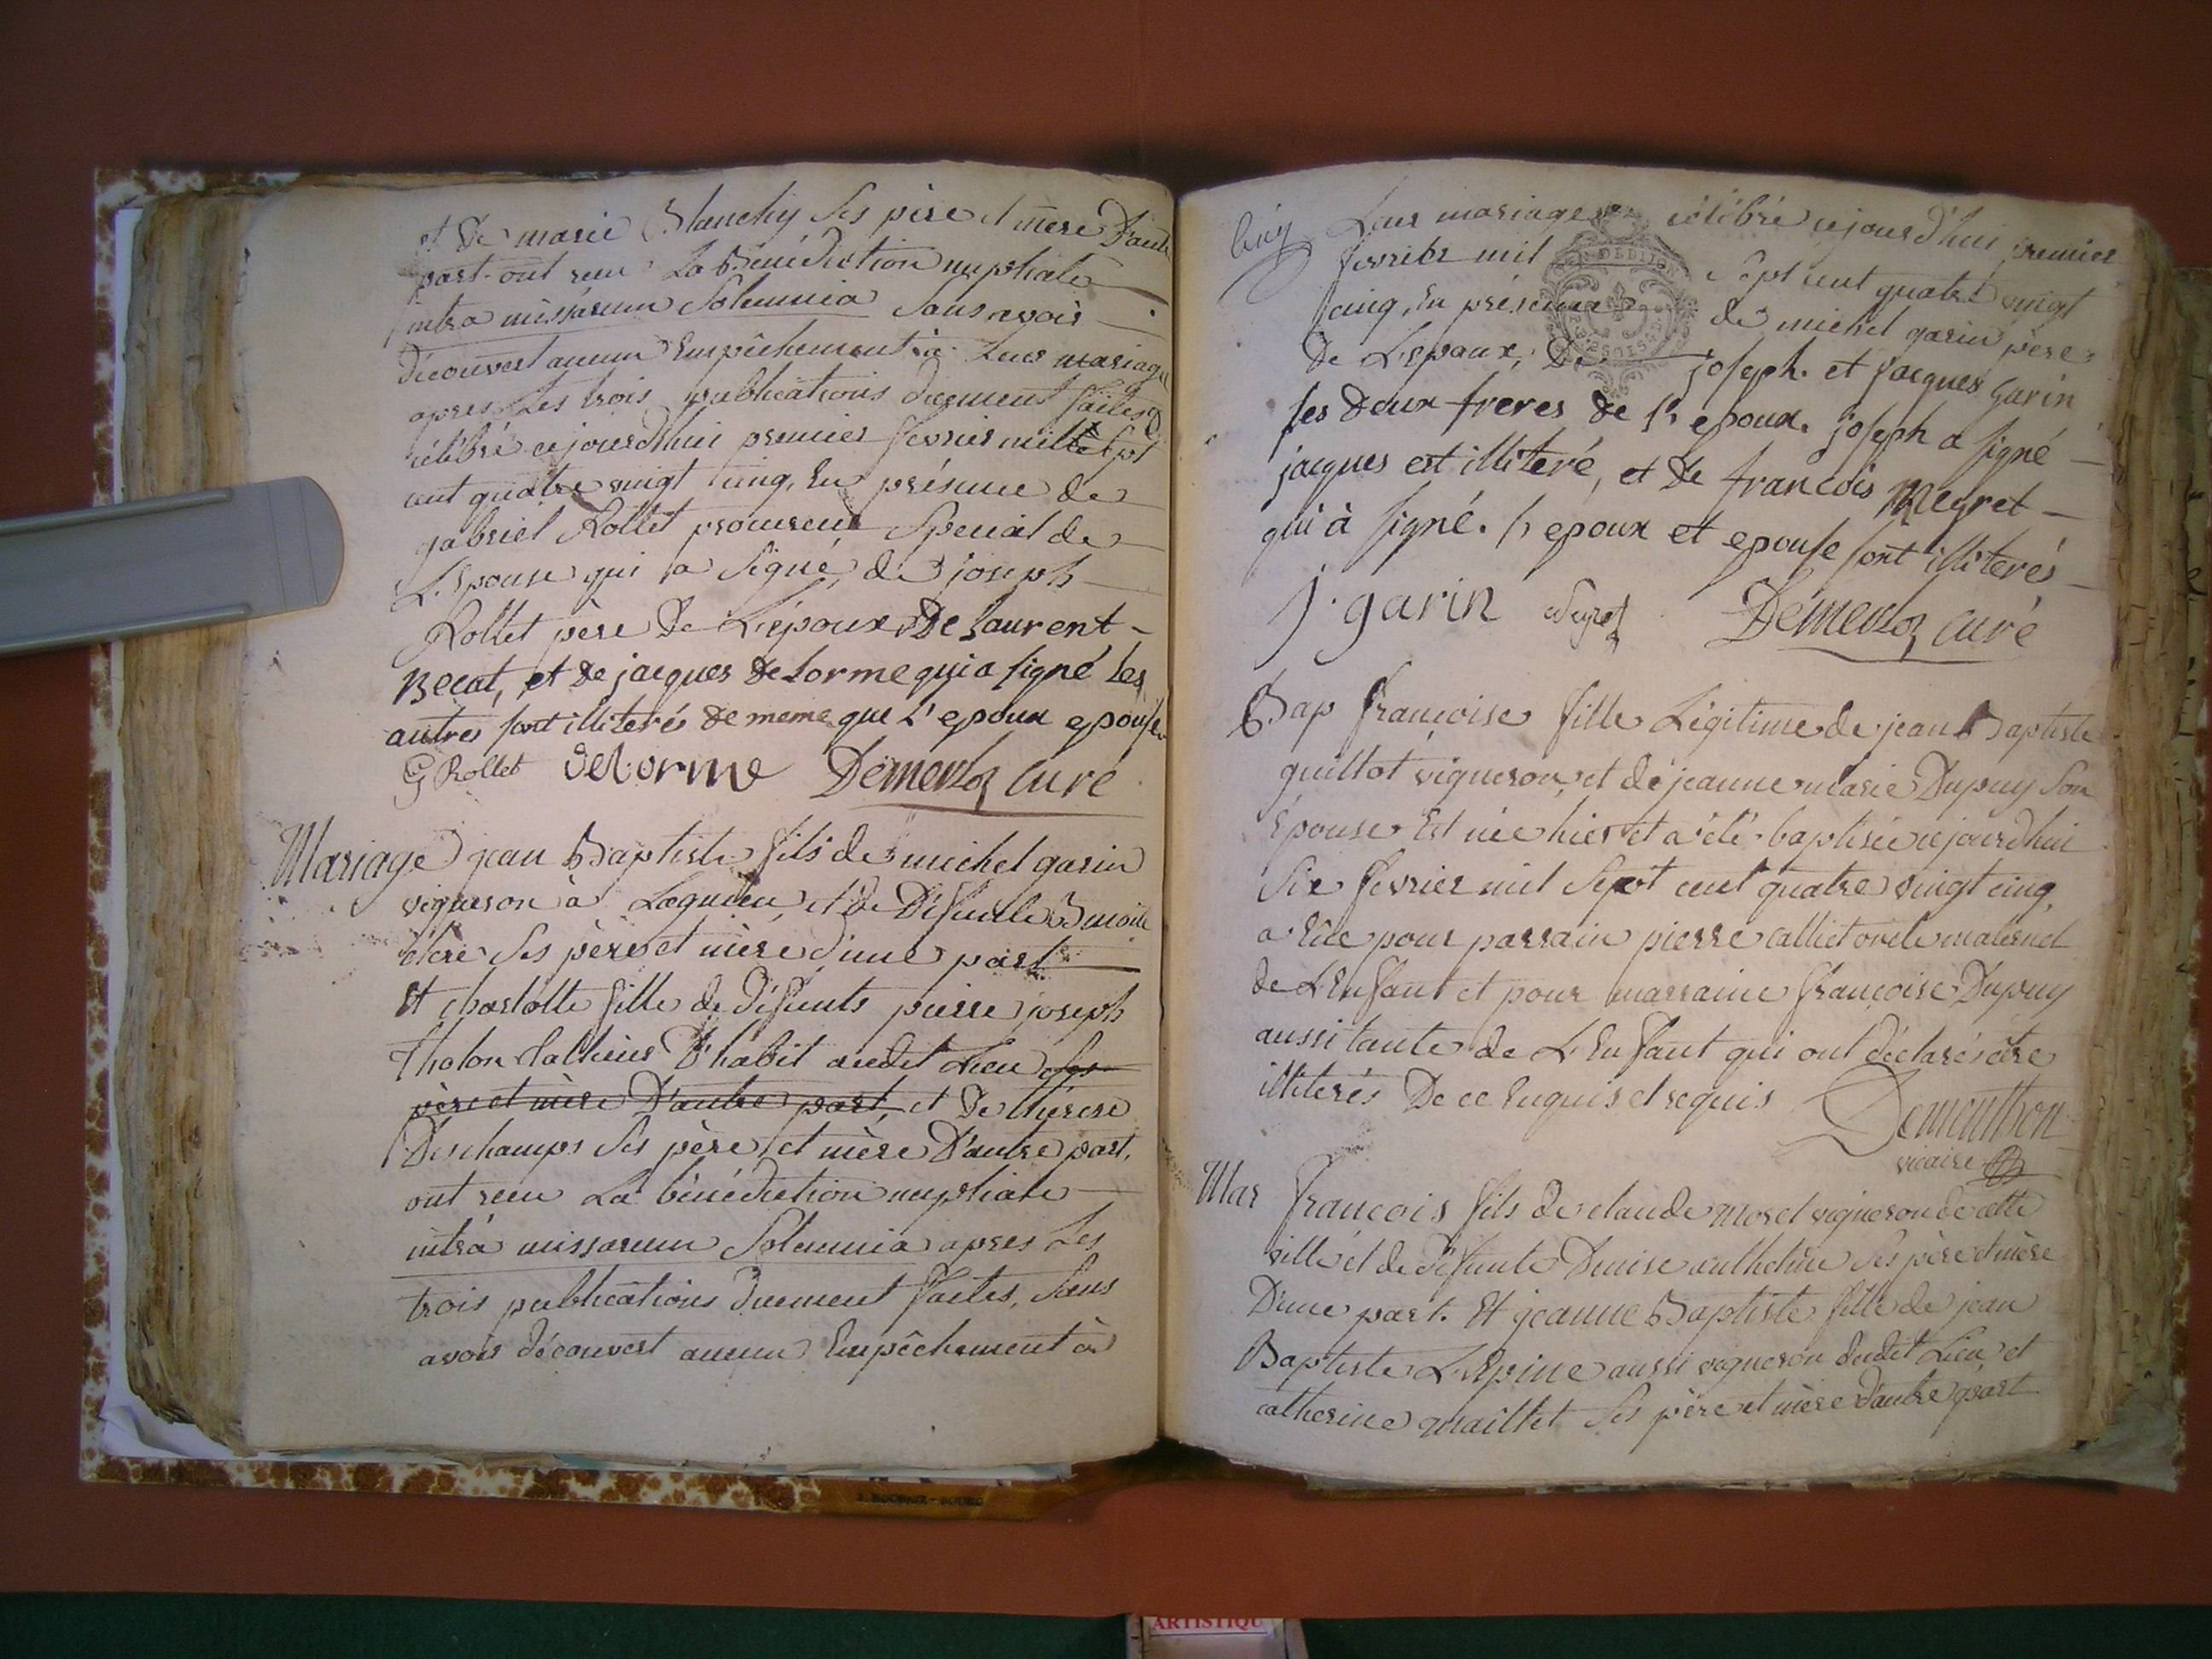 et de marie Blanchy ses père et mère D'autre
part. ont reçu La Bénédiction nuptiale
intra missarum Solemnia Sans avoir
découvert aucun Empêchement à Leur mariage
apres Les trois publications duement faites
célébré cejourdhui premier fevrier mil sept
cent quatre vingt cinq, En présence de
gabriel Rollet procureur Special de
L'Epouse qui a Signé, de joseph
Rollet père De L'époux, De Laurent
Becat, et de jacques delorme qui a signé Les
autres sont illiterés de meme que L'epoux epouse
G Rollet delorme curé
Mariage jean Baptiste fils de michel garin
vigneron à Lagnieu, et de Défunte Benoite
ses père et mère d'une part
Et charlotte fille de défunts pierre joseph
D'habit audit Lieu ses
père et mère D'autre part, et De therese
Deschamps Ses père et mère D'autre part,
ont reçu La bénédiction nuptiale
intrà missarum Solemnia apres Les
trois publications Duement faites, Sans
avoir découvert aucun Empêchement à
Leur mariage célébré cejourd'hui premier
fevrier mil Sept cent quatre vingt
cinq, En présence de michel garin père
De L'Epoux, De joseph. et jacques garin
ses deux freres de l'epoux. joseph a signé
jacques est illiteré, et de francois Meyret
qui à signé. l'epoux et epouse sont illiterés
j. garin curé
Bap françoise fille Légitime de jean Baptiste
guillot vigneron, et de jeanne marie Dupuy Son
Epouse Est née hier et a été baptisée cejourdhui
Six fevrier mil Sept cent quatre vingt cinq,
a Eue pour parrain pierre calliet oncle maternel
de L'Enfant et pour marraine françoise Dupuy
aussi tante de L'Enfant qui ont déclaré être
illiterés De ce Enquis et requis Dementhon
vicaire
Mar françois fils de claude morel vigneron de cette
ville et de défunte Denise ses père et mère
D'une part. Et jeanne Baptiste fille de jean
Baptiste L'Epine aussi vigneron dudit Lieu et
catherine maillet Ses père et mère d'autre part
ARTISTIQU